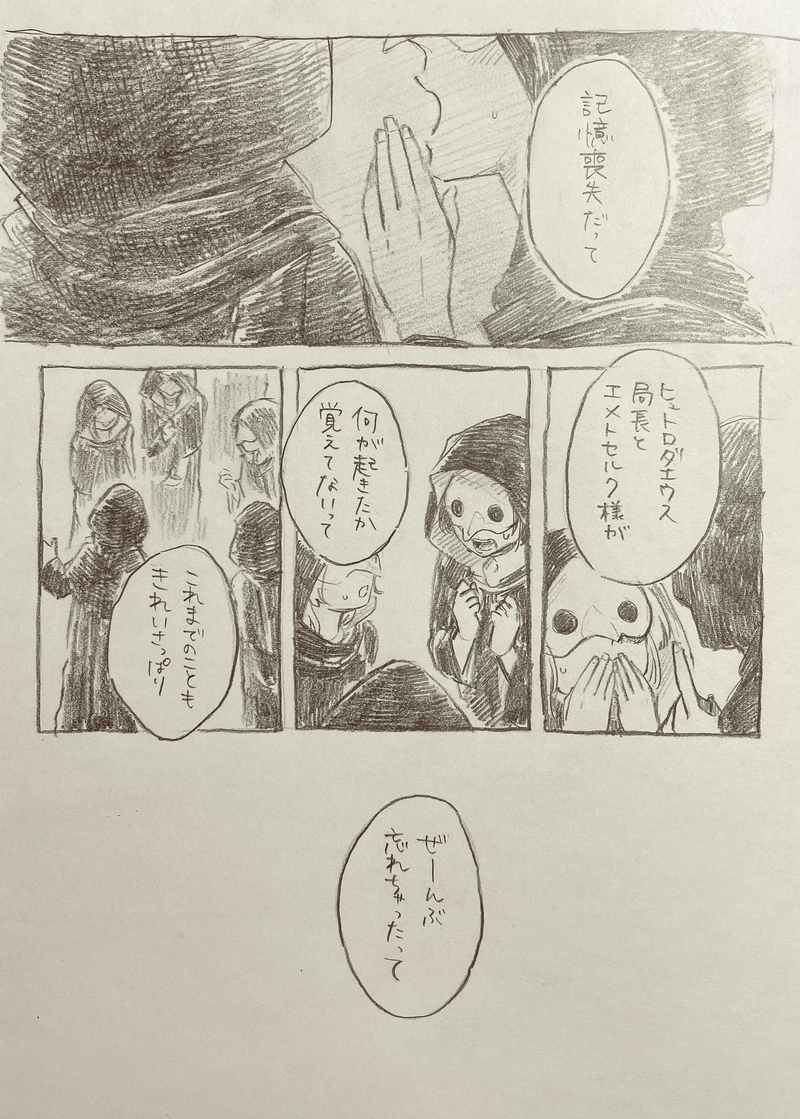 記憶喪失だって
ヒュトロダエウス
局長と
エメトセルク様が
何が起きたか
覚えてないって
これまでのことも
きれいさっぱり
ぜーんぶ
忘れちゃったって